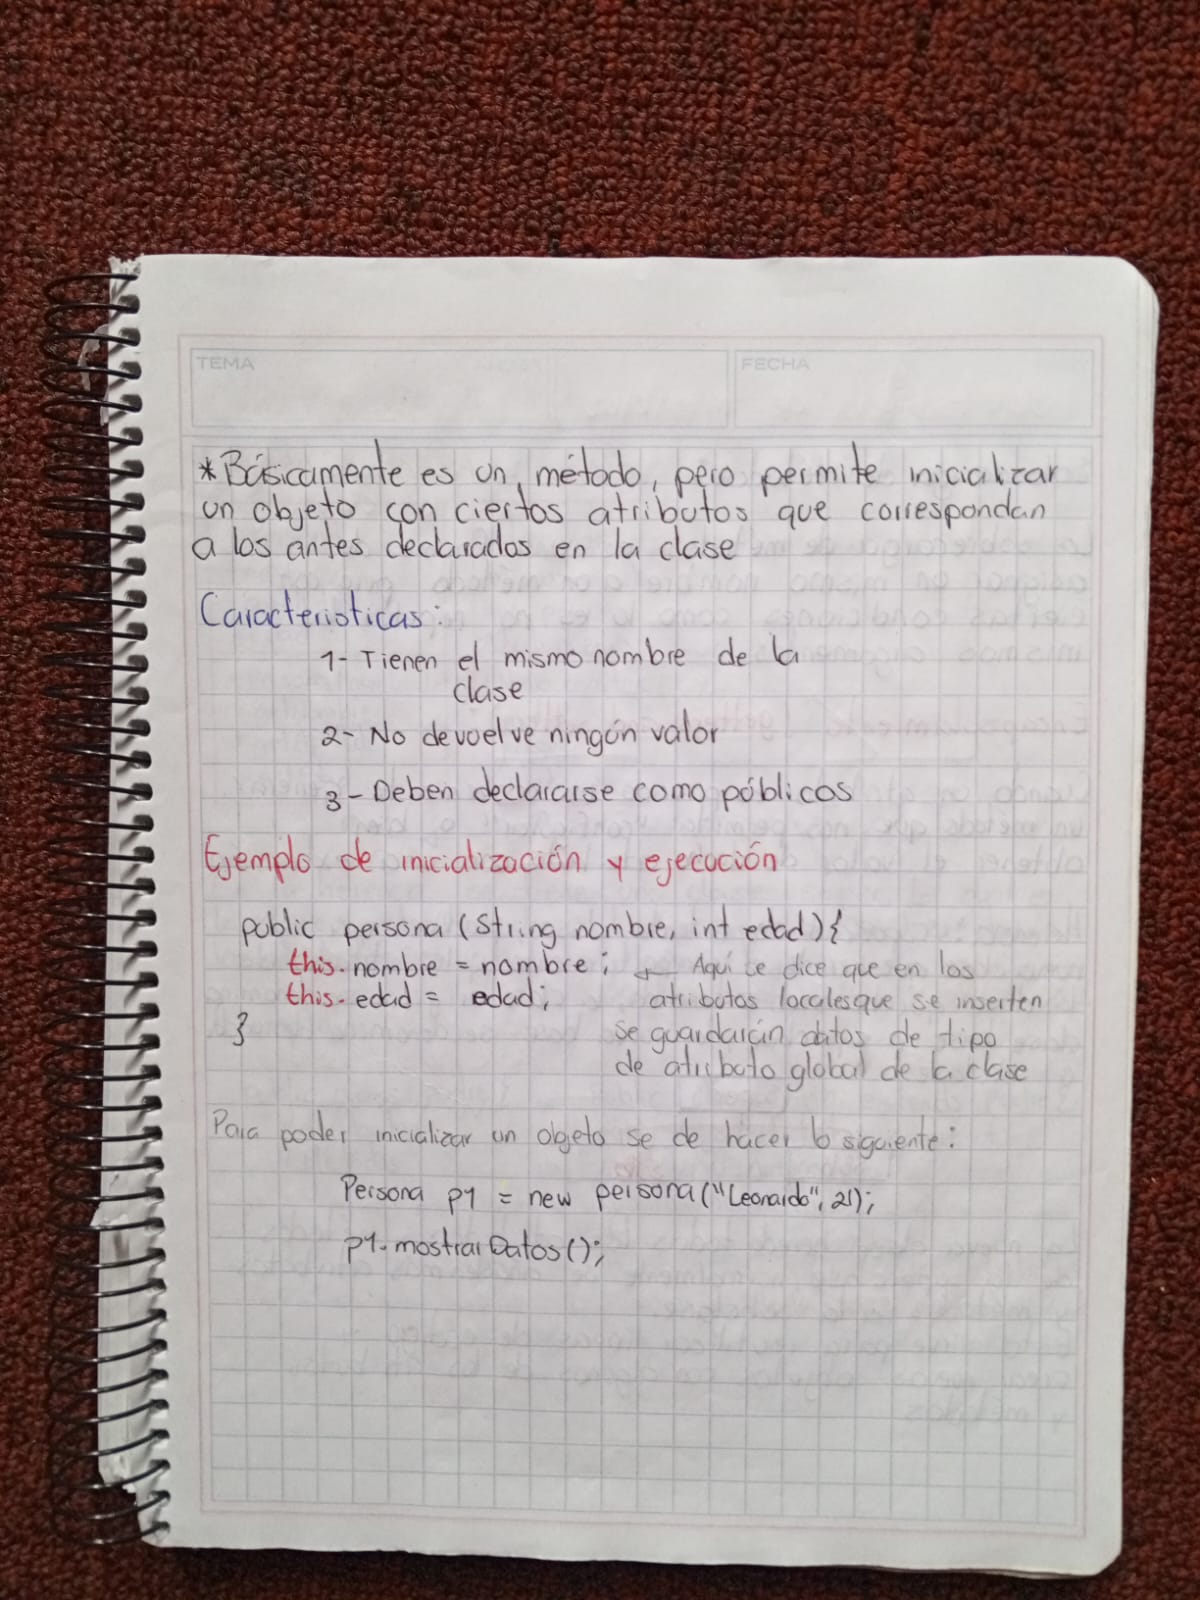 TEMA
FECHA
*Básicamente es un método, pero permite inicializar
un objeto con ciertos atributos que correspondan
a los antes declarados en la clase
Características:
1- Tienen el mismo nombre de la
clase
2- No devuelve ningún valor
3- Deben declararse como públicos
Ejemplo de inicialización y ejecución
public persona (String nombre, int edad){
this.nombre = nombre; ← Aquí se dice que en los
this.edad = edad; atributos locales que se inserten
} se guardarán datos de tipo
de atributo global de la clase
Para poder inicializar un objeto se de hacer lo siguiente:
Persona p1 = new persona("Leonardo", 21);
p1.mostrarDatos();